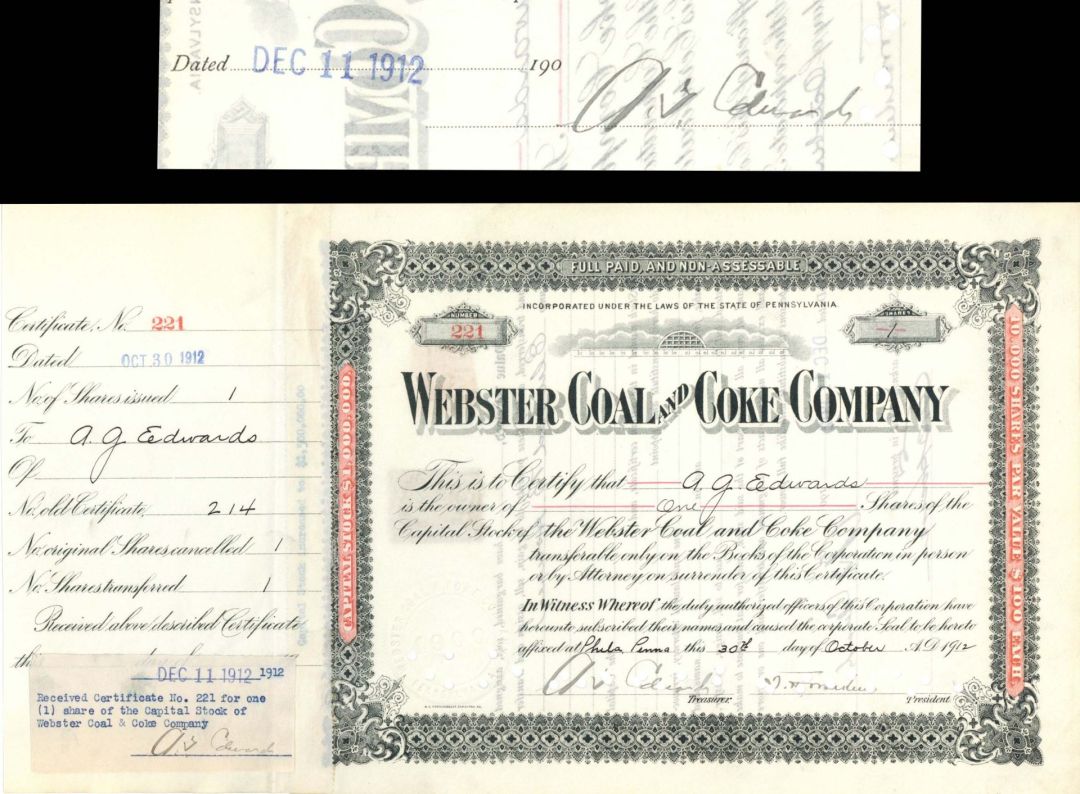 Dated DEC 11 1912 190
A. G. Edwards
Certificate No. 221
Dated OCT 30 1912
No. of Shares issued 1
To A G Edwards
Of
No. old Certificate 214
No. original Shares cancelled 1
No. Shares transferred 1
Received above described Certificate
this
DEC 11 1912 1912
Received Certificate No. 221 for one
(1) share of the Capital Stock of
Webster Coal & Coke Company
A G Edwards
FULL PAID, AND NON-ASSESSABLE
INCORPORATED UNDER THE LAWS OF THE STATE OF PENNSYLVANIA
NUMBER
221
SHARES
1
CAPITAL STOCK $1,000,000
10,000 SHARES PAR VALUE $100 EACH
WEBSTER COAL AND COKE COMPANY
This is to Certify that A G Edwards
is the owner of One Shares of the
Capital Stock of the Webster Coal and Coke Company
transferable only on the Books of the Corporation in person
or by Attorney on surrender of this Certificate.
In Witness Whereof the duly authorized officers of this Corporation have
hereunto subscribed their names and caused the corporate Seal to be hereto
affixed at Phila Penna this 30th day of October A.D. 1912
A G Edwards
Treasurer
President